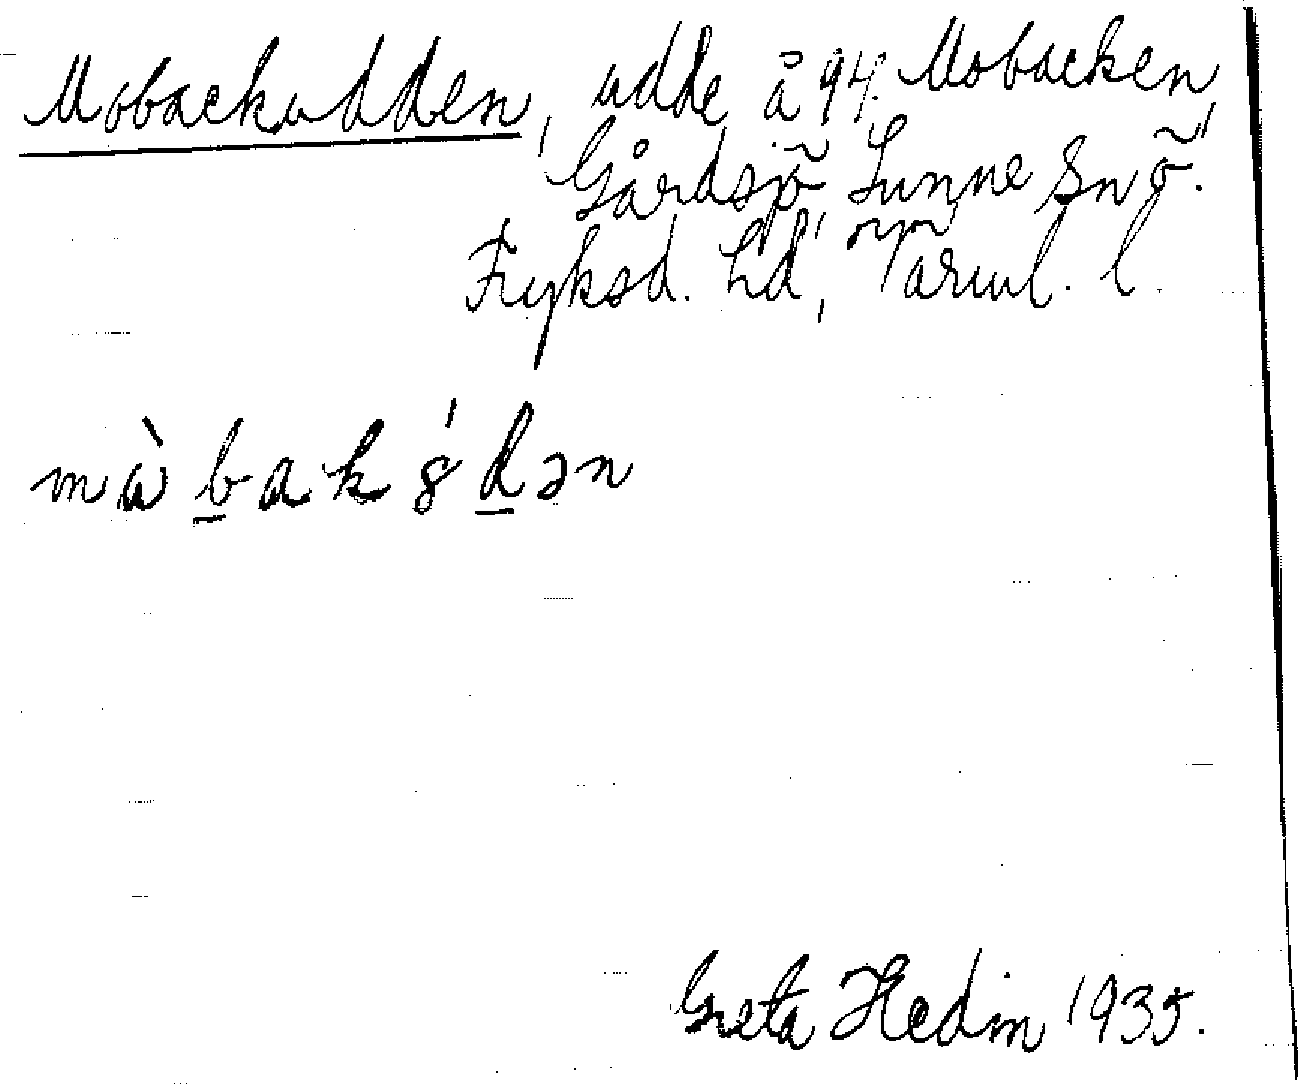 Mobackudden, udde å 94. Mobacken,
Gårdsjö Sunne Snö.
Fryksd. hd, Värml. l.
mὼbakȣ́dən
Greta Hedin 1935.